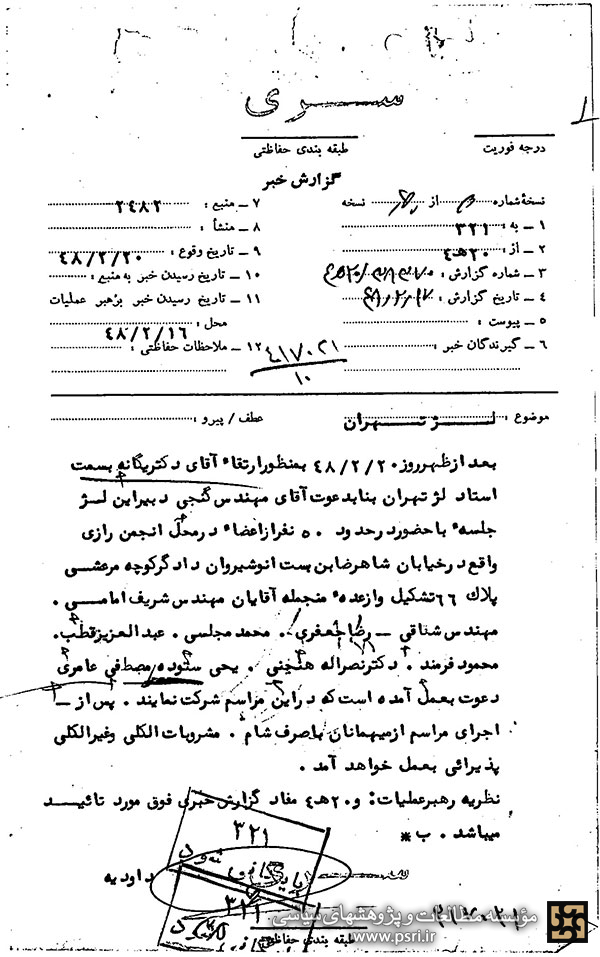 سـری
درجه فوریت
طبقه بندی حفاظتی
گزارش خبر
نسخهٔ شماره از نسخه
۱ ـ به : ۳۲۱
۲ ـ از : ۲۰هـ۴
۳ ـ شماره گزارش :
۴ ـ تاریخ گزارش : ۴۸،۲،۱۷
۵ ـ پیوست :
۶ ـ گیرندگان خبر :
۷ ـ منبع : ۲۴۸۲
۸ ـ منشأ :
۹ ـ تاریخ وقوع : ۴۸/۲/۲۰
۱۰ ـ تاریخ رسیدن خبر به منبع :
۱۱ ـ تاریخ رسیدن خبر برهبر عملیات
محل : ۴۸/۲/۱۶
۱۲ ـ ملاحظات حفاظتی :
۴۱۷۰۲۱
۱۰
موضوع : لـــژ تــهـران
عطف / پیرو :
بعد ازظهرروز ۴۸/۲/۲۰ بمنظورارتقاء آقای دکتریگانه بسمت
استاد لژ تهران بنابدعوت آقای مهندس گنجی دبیراین لــژ
جلسهٔ باحضوردرحدود ۵۰ نفرازاعضاء درمحل انجمن رازی
واقع درخیابان شاهرضا بن بست انوشیروان دادگرکوچه مرعشی
پلاک ۶۶تشکیل وازعدهٔ منجمله آقایان مهندس شریف امامــی .
مهندس شقاقی ـ رضا جعفری . محمد مجلسی . عبدالعزیزقطب.
محمود فرمند . دکترنصراله . یحی ستوده مصطفی عامری
دعوت بعمل آمده است که دراین مراسم شرکت نمایند . پس از ــ
اجرای مراسم ازمیهمانان باصرف شام . مشروبات الکلی وغیرالکلی
پذیرائی بعمل خواهد آمد .
نظریه رهبرعملیات: و۲۰هـ۴ مفاد گزارش خبری فوق مورد تائیـــد
میباشد . ب*
۳۲۱
شود
داودیه
۳۲۱
طبقه بندی حفاظتی
مؤسسه مطالعات و پژوهشهای سیاسی
www.psri.ir